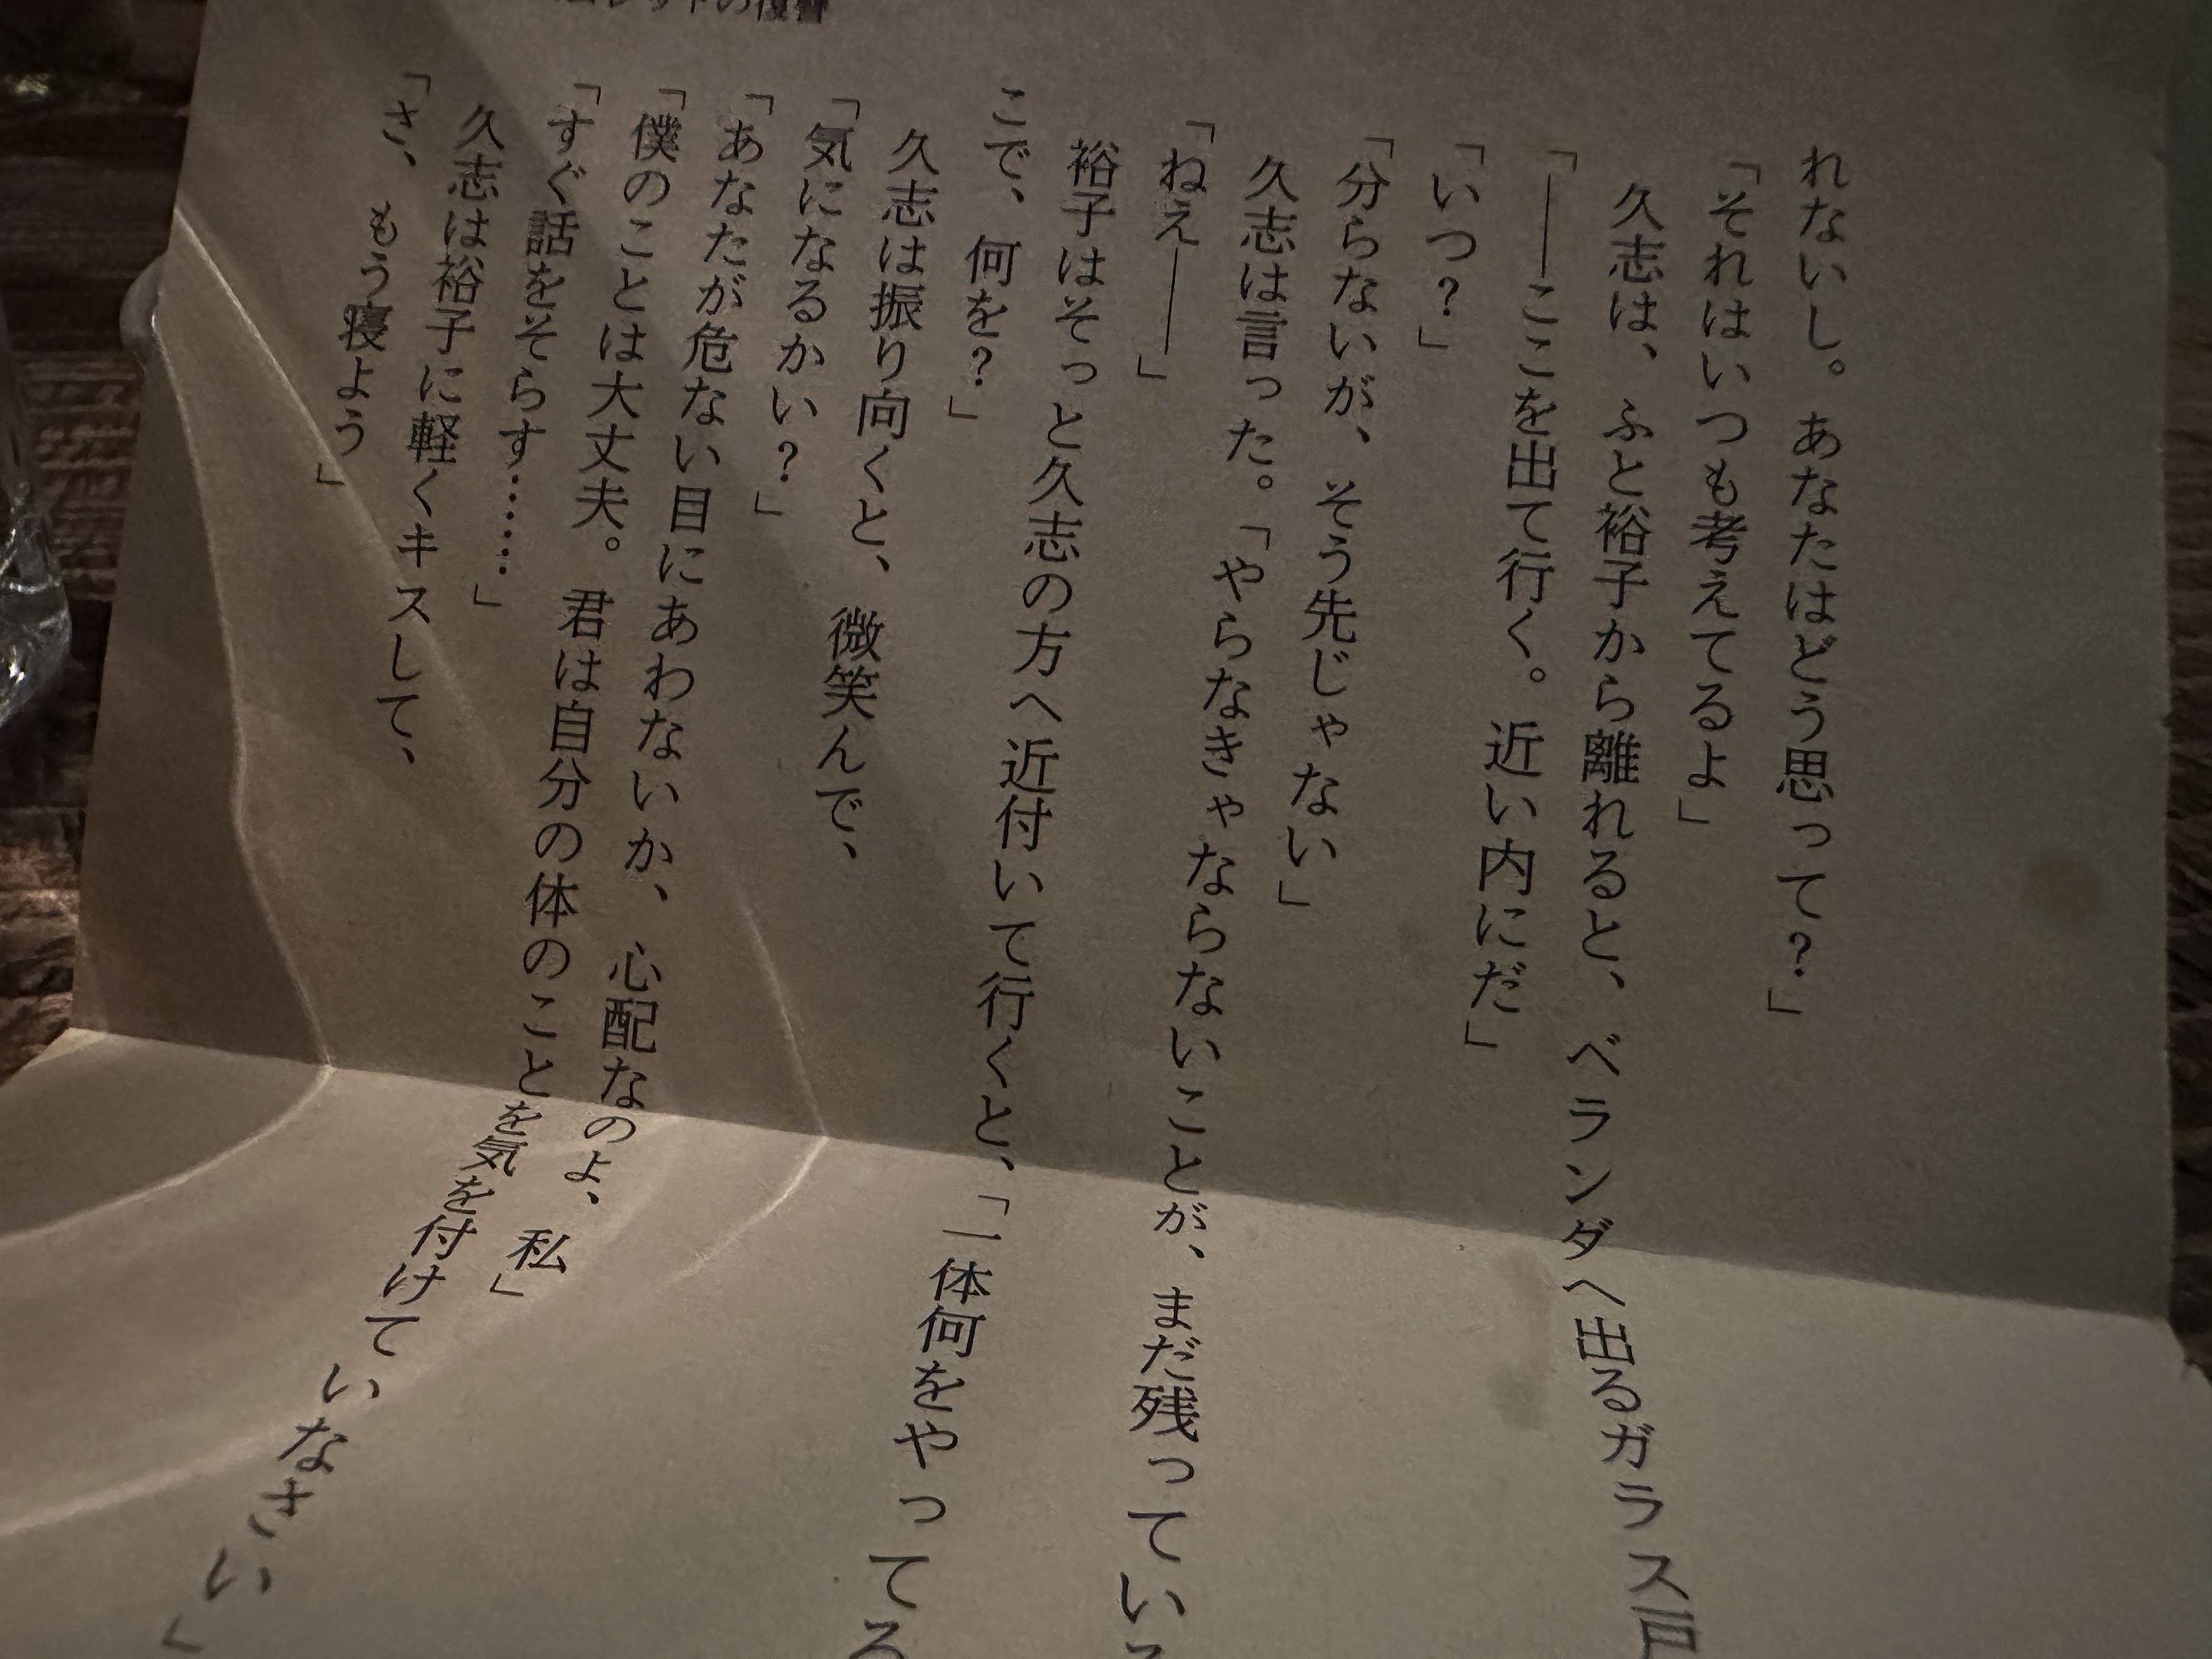 の復讐
れないし。あなたはどう思って？」
「それはいつも考えてるよ」
久志は、ふと裕子から離れると、ベランダへ出るガラス戸
「――ここを出て行く。近い内にだ」
「いつ？」
「分らないが、そう先じゃない」
久志は言った。「やらなきゃならないことが、まだ残っている
「ねえ――」
裕子はそっと久志の方へ近付いて行くと、「一体何をやってる
こで、何を？」
久志は振り向くと、微笑んで、
「気になるかい？」
「あなたが危ない目にあわないか、心配なのよ、私」
「僕のことは大丈夫。君は自分の体のことを気を付けていなさい」
「すぐ話をそらす……」
久志は裕子に軽くキスして、
「さ、もう寝よう」